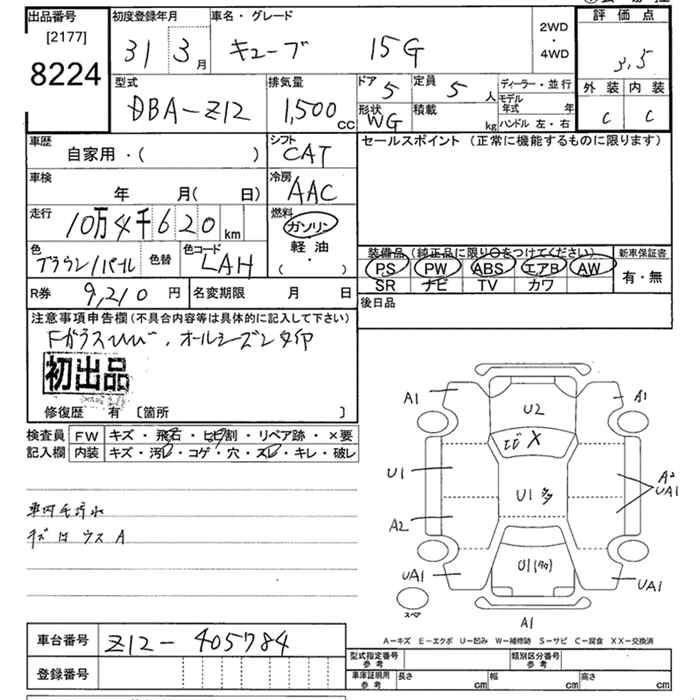 出品番号
[2177]
8224
初度登録年月
31 3 月
車名・グレード
キューブ 15G
2WD
・
4WD
評価点
3,5
外装 内装
C C
型式
DBA-Z12
排気量
1,500 CC
ドア 5
定員 5 人
形状 WG
積載 kg
ディーラー・並行
モデル年式 年
ハンドル 左・右
車歴
自家用・( )
シフト
CAT
セールスポイント (正常に機能するものに限ります)
車検
年 月( 日)
冷房
AAC
走行
10万4千620 km
燃料
ガソリン
軽油
( ・ )
色
ブラウン/パール
色替
色コード
LAH
装備品 (純正品に限り○をつけてください)
PS PW ABS エアB AW
SR ナビ TV カワ
新車保証書
有・無
R券 9,210 円
名変期限 月 日
後日品
注意事項申告欄(不具合内容等は具体的に記入して下さい)
FガラスひびI、オールシーズンタイヤ
初出品
修復歴 有 〔箇所 〕
検査員記入欄
FW キズ・飛石・ヒビ割・リペア跡・×要
内装 キズ・汚レ・コゲ・穴・スレ・キレ・破レ
車内
キズ ウス A
A1
A1
U2
ヒビ X
U1
U1 多
A2
UA1
A2
UA1
U1(多)
UA1
A1
スペア
A-キズ E-エクボ U-凹み W-補修跡 S-サビ C-腐食 XX-交換済
車台番号
Z12-405784
登録番号
型式指定番号
参考
類別区分番号
参考
車庫証明用
参考
長さ cm
幅 cm
高さ cm